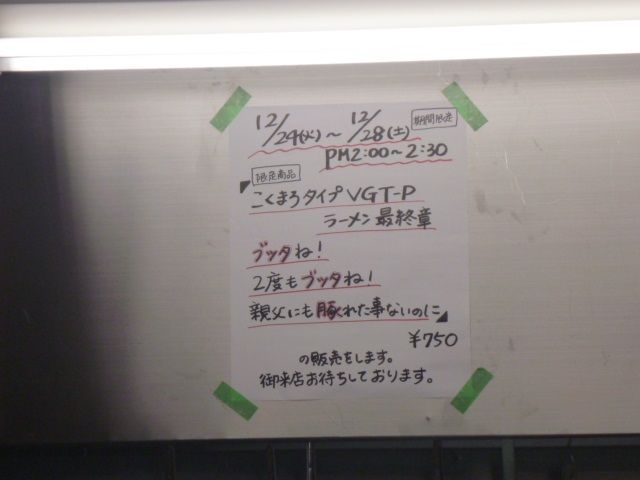 12/24(火)～12/28(土) 期間限定
PM2:00～2:30
限定商品
「こくまろタイプVGT-P
ラーメン最終章
ブッタね!
2度もブッタね!
親父にも豚れた事ないのに」
¥750
の販売をします。
御来店お待ちしております。